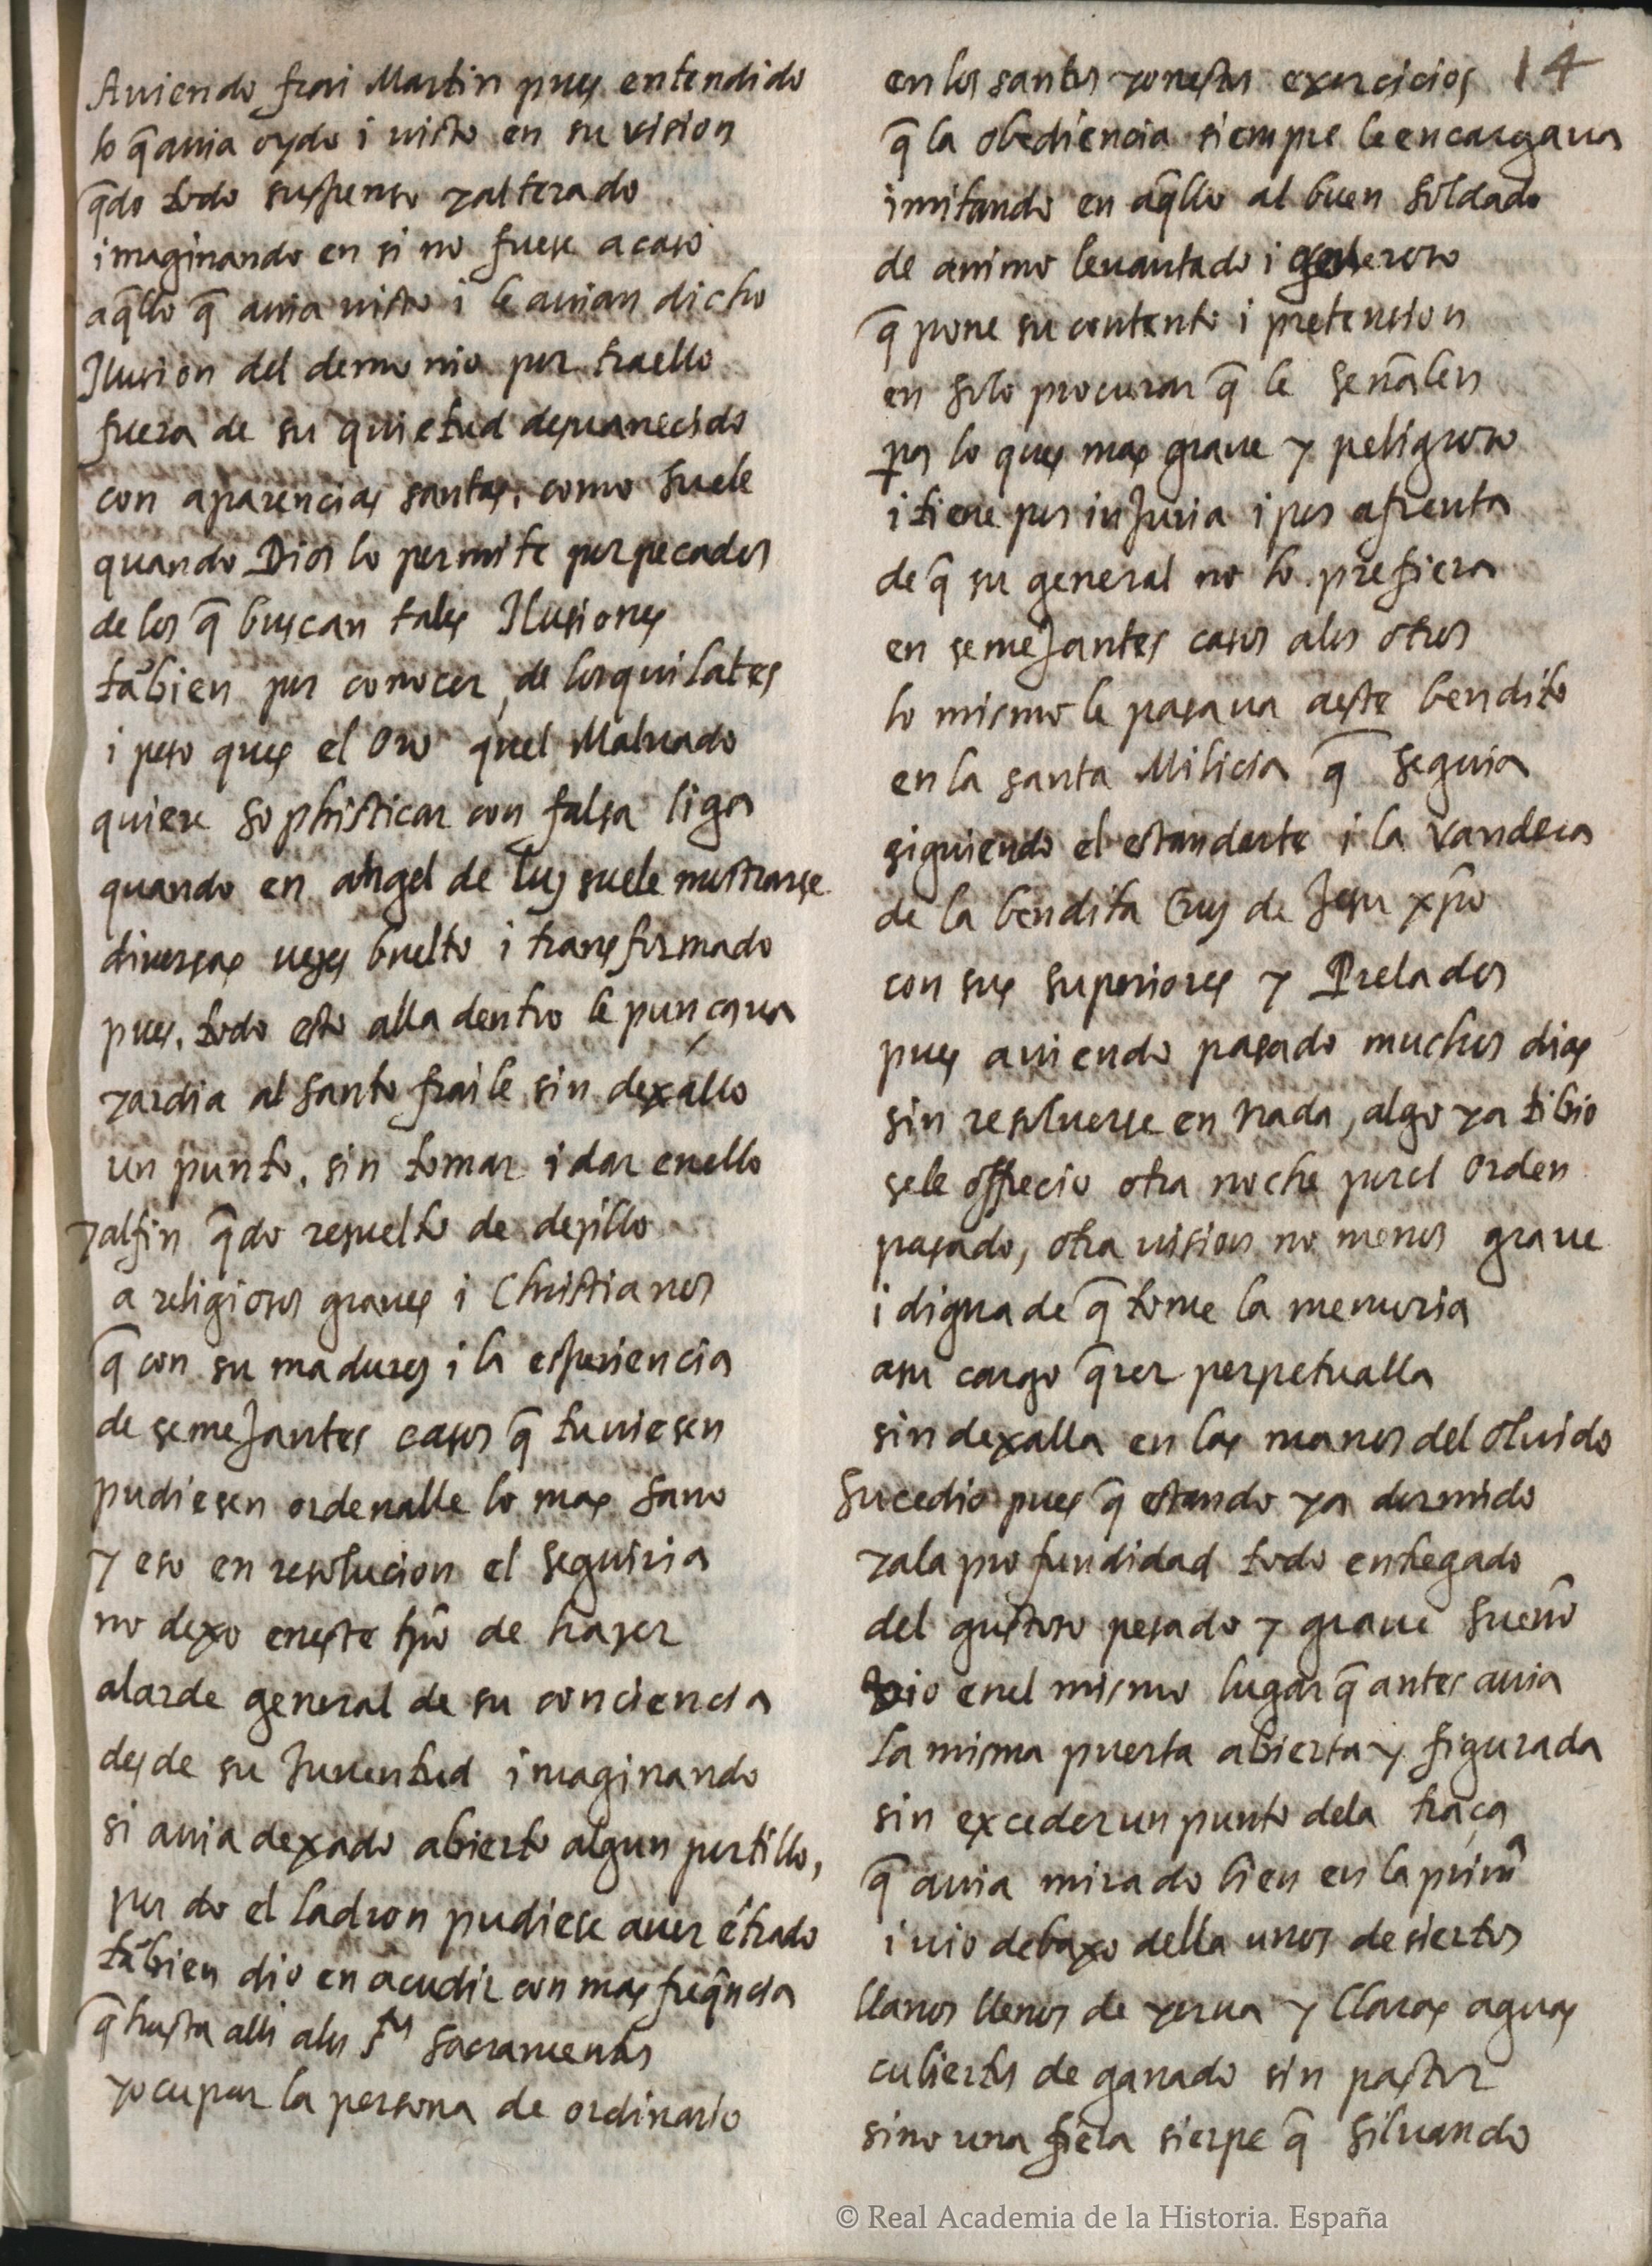 Auiendo frai Martin pues entendido
lo q̃ auia oydo i uisto en su vision
q̃do todo suspenso y alterado
imaginando en si no fuese acaso
aq̃llo q̃ auia uisto i le auian dicho
Ilusion del demonio por traello
fuera de su quietud desuanecido
con aparencias santas, como suele
quando Dios lo permite por pecados
de los q̃ buscan tales Ilusiones
tãbien por conocer, de los quilates
i peso ques el Oro quel Maluado
quiere sophisticar con falsa liga
quando en angel de luz suele mostrarse
diuersas uezes buelto i transformado
pues, todo esto alla dentro le punçaua
y ardia al santo fraile sin dexallo
un punto, sin tomar i dar en ello
y alfin q̃do resuelto de dezillo
a religiosos graues i Christianos
q̃ con su madurez i la esperiencia
de semeJantes casos q̃ tuuiesen
pudiesen ordenalle lo mas sano
y eso en resolucion el seguiria
no dexo en este tpõ de hazer
alarde general de su conciencia
desde su Juuentud imaginando
si auia dexado abierto algun portillo,
por do el ladron pudiese auer ẽtrado
tãbien dio en acudir con mas freq̃ncia
q̃ hasta alli a los s.tos sacramentos
y ocupar la persona de ordinario
14
en los santos y onestos exercicios
q̃ la obediencia siempre le encargaua
imitando en aq̃llo al buen soldado
de animo leuantado i generoso
q̃ pone su contento i pretension
en solo procurar q̃ le señalen
pa lo ques mas graue y peligroso
i tiene por inJuria i por afrenta
de q̃ su general no lo prefiera
en semeJantes casos a los otros
lo mismo le pasaua a este bendito
en la santa Milicia q̃ seguia
siguiendo el estandarte i la vandera
de la bendita Cruz de Jesu xp̃o
con sus superiores y Prelados
pues auiendo pasado muchos dias
sin resoluerse en nada, algo ya tibio
se le offrecio otra noche por el Orden
pasado, otra uision no menos graue
i digna de q̃ tome la memoria
a su cargo q̃rer perpetualla
sin dexalla en las manos del oluido
Sucedio pues q̃ estando ya dormido
y a la profundidad todo entregado
del gustoso pesado y graue sueño
vio en el mismo lugar q̃ antes auia
la misma puerta abierta y figurada
sin exceder un punto de la traça
q̃ auia mirado bien en la primª
i uio debaxo della unos desiertos
llanos llenos de yerua y Claras aguas
cubiertos de ganado sin pastor
sino una fiera sierpe q̃ siluando
© Real Academia de la Historia. España